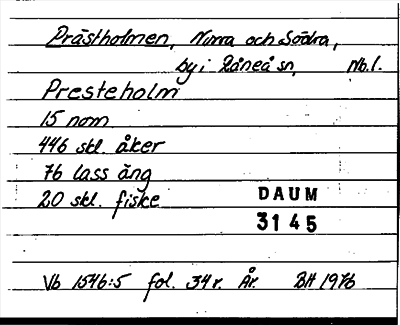 Prästholmen, Norra och Södra,
by i Råneå sn, Nb.l.
Presteholm
15 nom
446 skl. åker
76 lass äng
20 skl. fiske
DAUM
3145
Vb 1546:5 fol. 34r. År. BH 1976